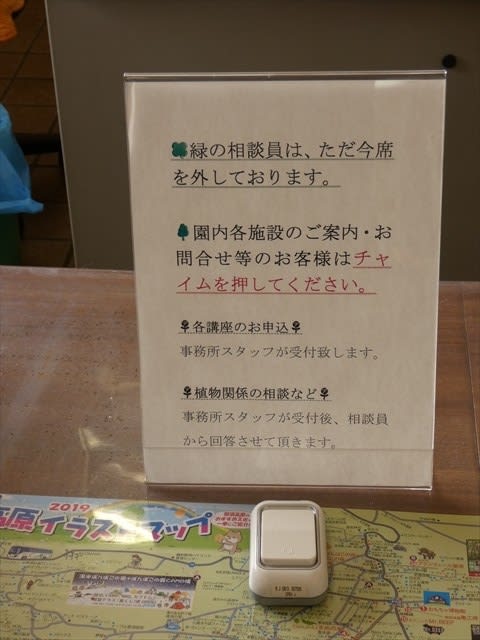 緑の相談員は、ただ今席
を外しております。
園内各施設のご案内・お
問合せ等のお客様はチャ
イムを押してください。
各講座のお申込
事務所スタッフが受付致します。
植物関係の相談など
事務所スタッフが受付後、相談員
から回答させて頂きます。
2019
高原イラストマップ